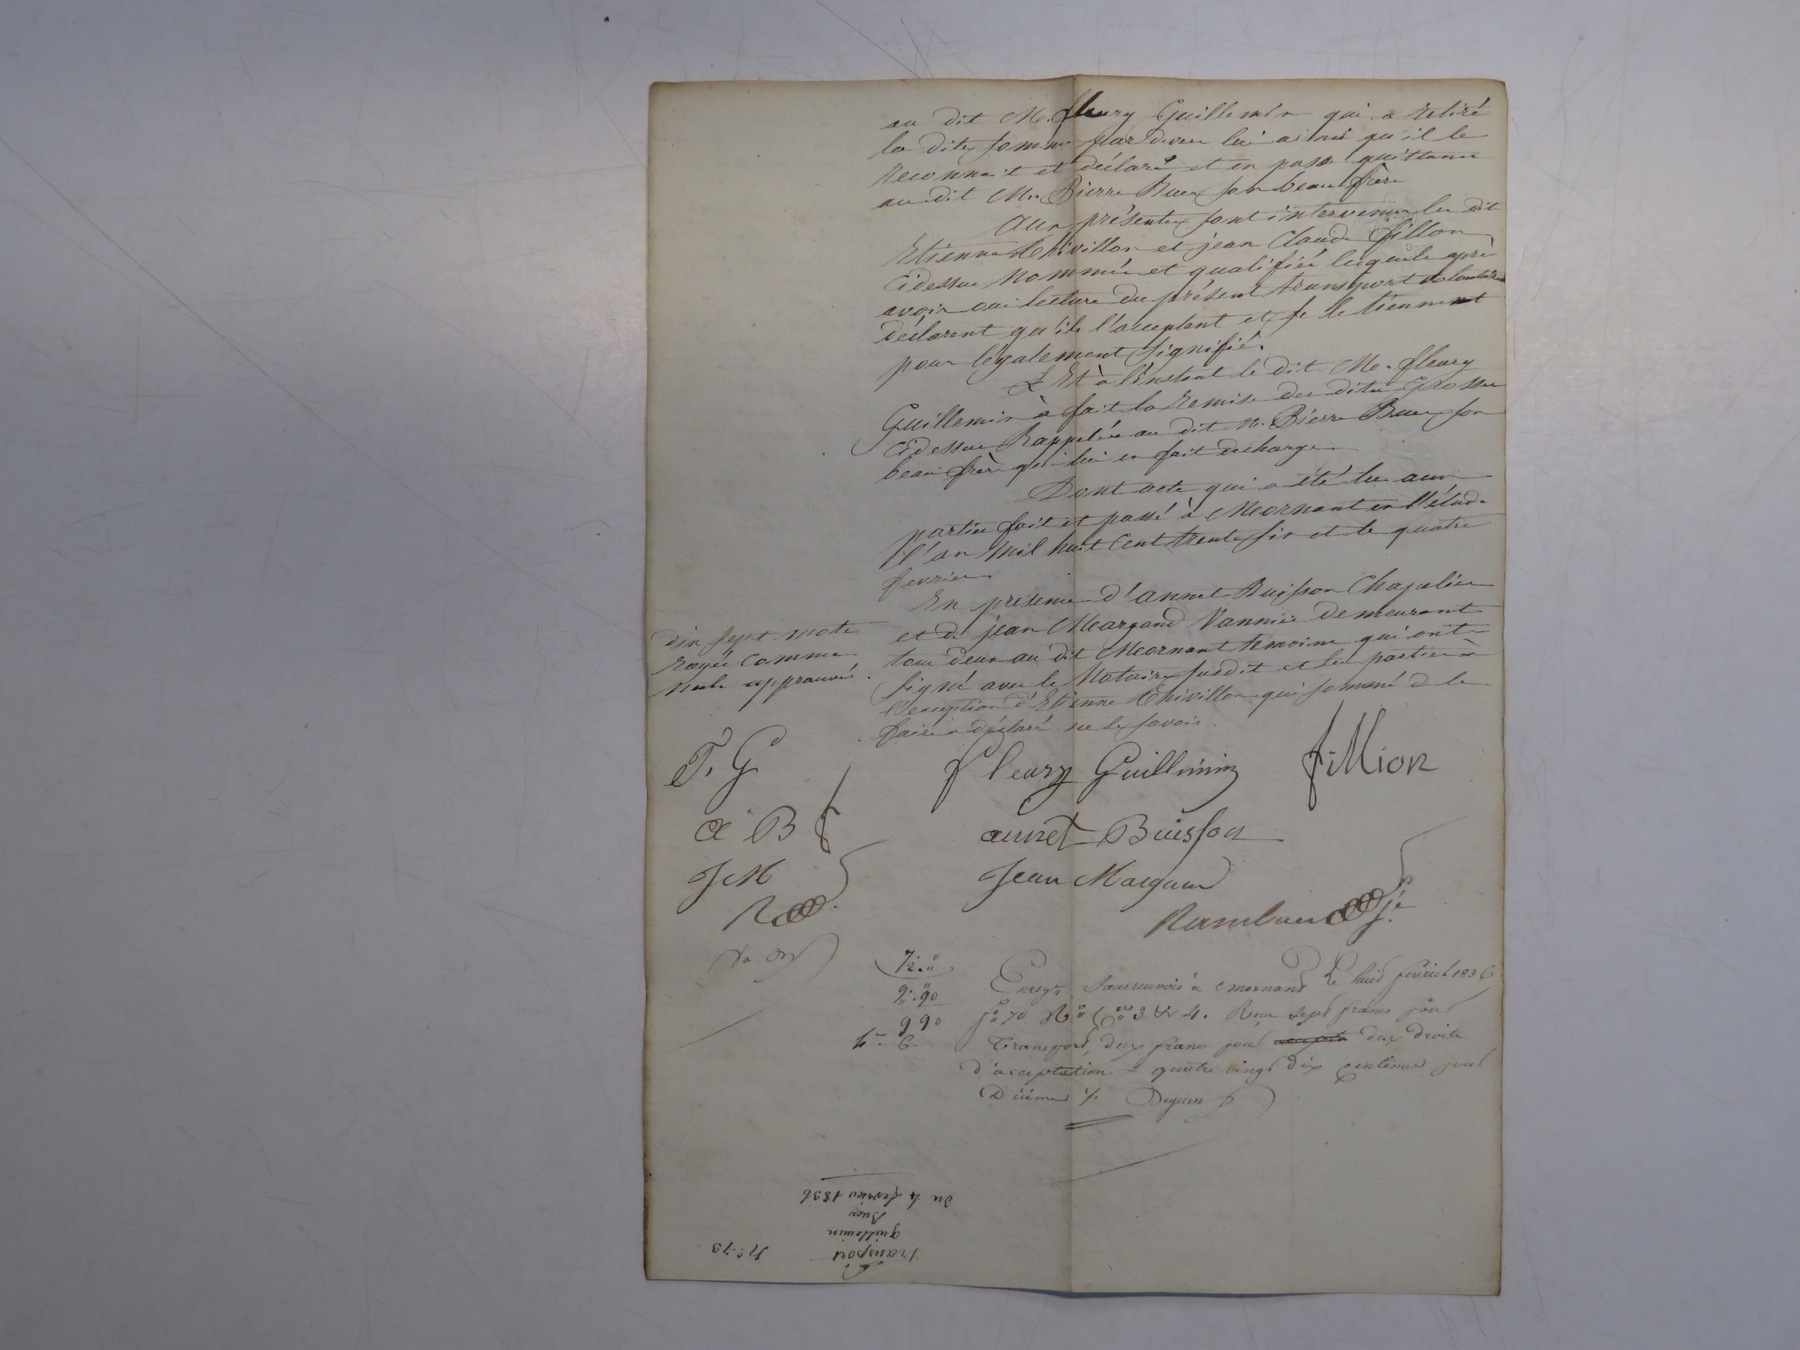 au dit Mr. fleury Guillemin qui a retiré
la dite somme par devers lui ainsi qu'il le
reconnait et déclare et en passe quittance
au dit Mr. Pierre Buer son beau frère
Aux présentes sont intervenus les dit
Etienne Thivillon et jean Claude fillon
Cidessus nommés et qualifiés lesquels après
avoir oui lecture du présent transport
déclarent qu'ils l'acceptent et se le tiennent
pour légalement signifié.
Et à l'instant le dit Mr. fleury
Guillemin à fait la remise des dites Grosses
Cidessus Rappelées au dit M. Pierre Buer son
beau frère qui lui en fait décharge.
Dont acte qui a été lu aux
parties fait et passé à Mornant en l'étude
l'an mil huit cent trente six et le quatre
fevrier
En présence d'annet Buisson Chapelier
et de jean Margand Vannier demeurant
tous deux au dit Mornant témoins qui ont
signé avec le Notaire susdit et les parties à
l'exception d'Etienne Thivillon qui sommé de le
faire a déclaré ne le savoir.
dix sept mots
rayés comme
nuls approuvés.
F. G
fleury Guillemin
fillion
a B f
annet Buisson
J M
Jean Margand
R
7 2. "
9. " 90
9 90
Enregé à mornant Le huit fevrier 1836
fo 70 Ro Ces 3 et 4. Reçu sept francs pour
Transport, deux francs pour deux droits
d'acceptation quatre vingt dix centimes pour
Dixième
Transport
guillemin
Buer
du 4 fevrier 1836
No. 73